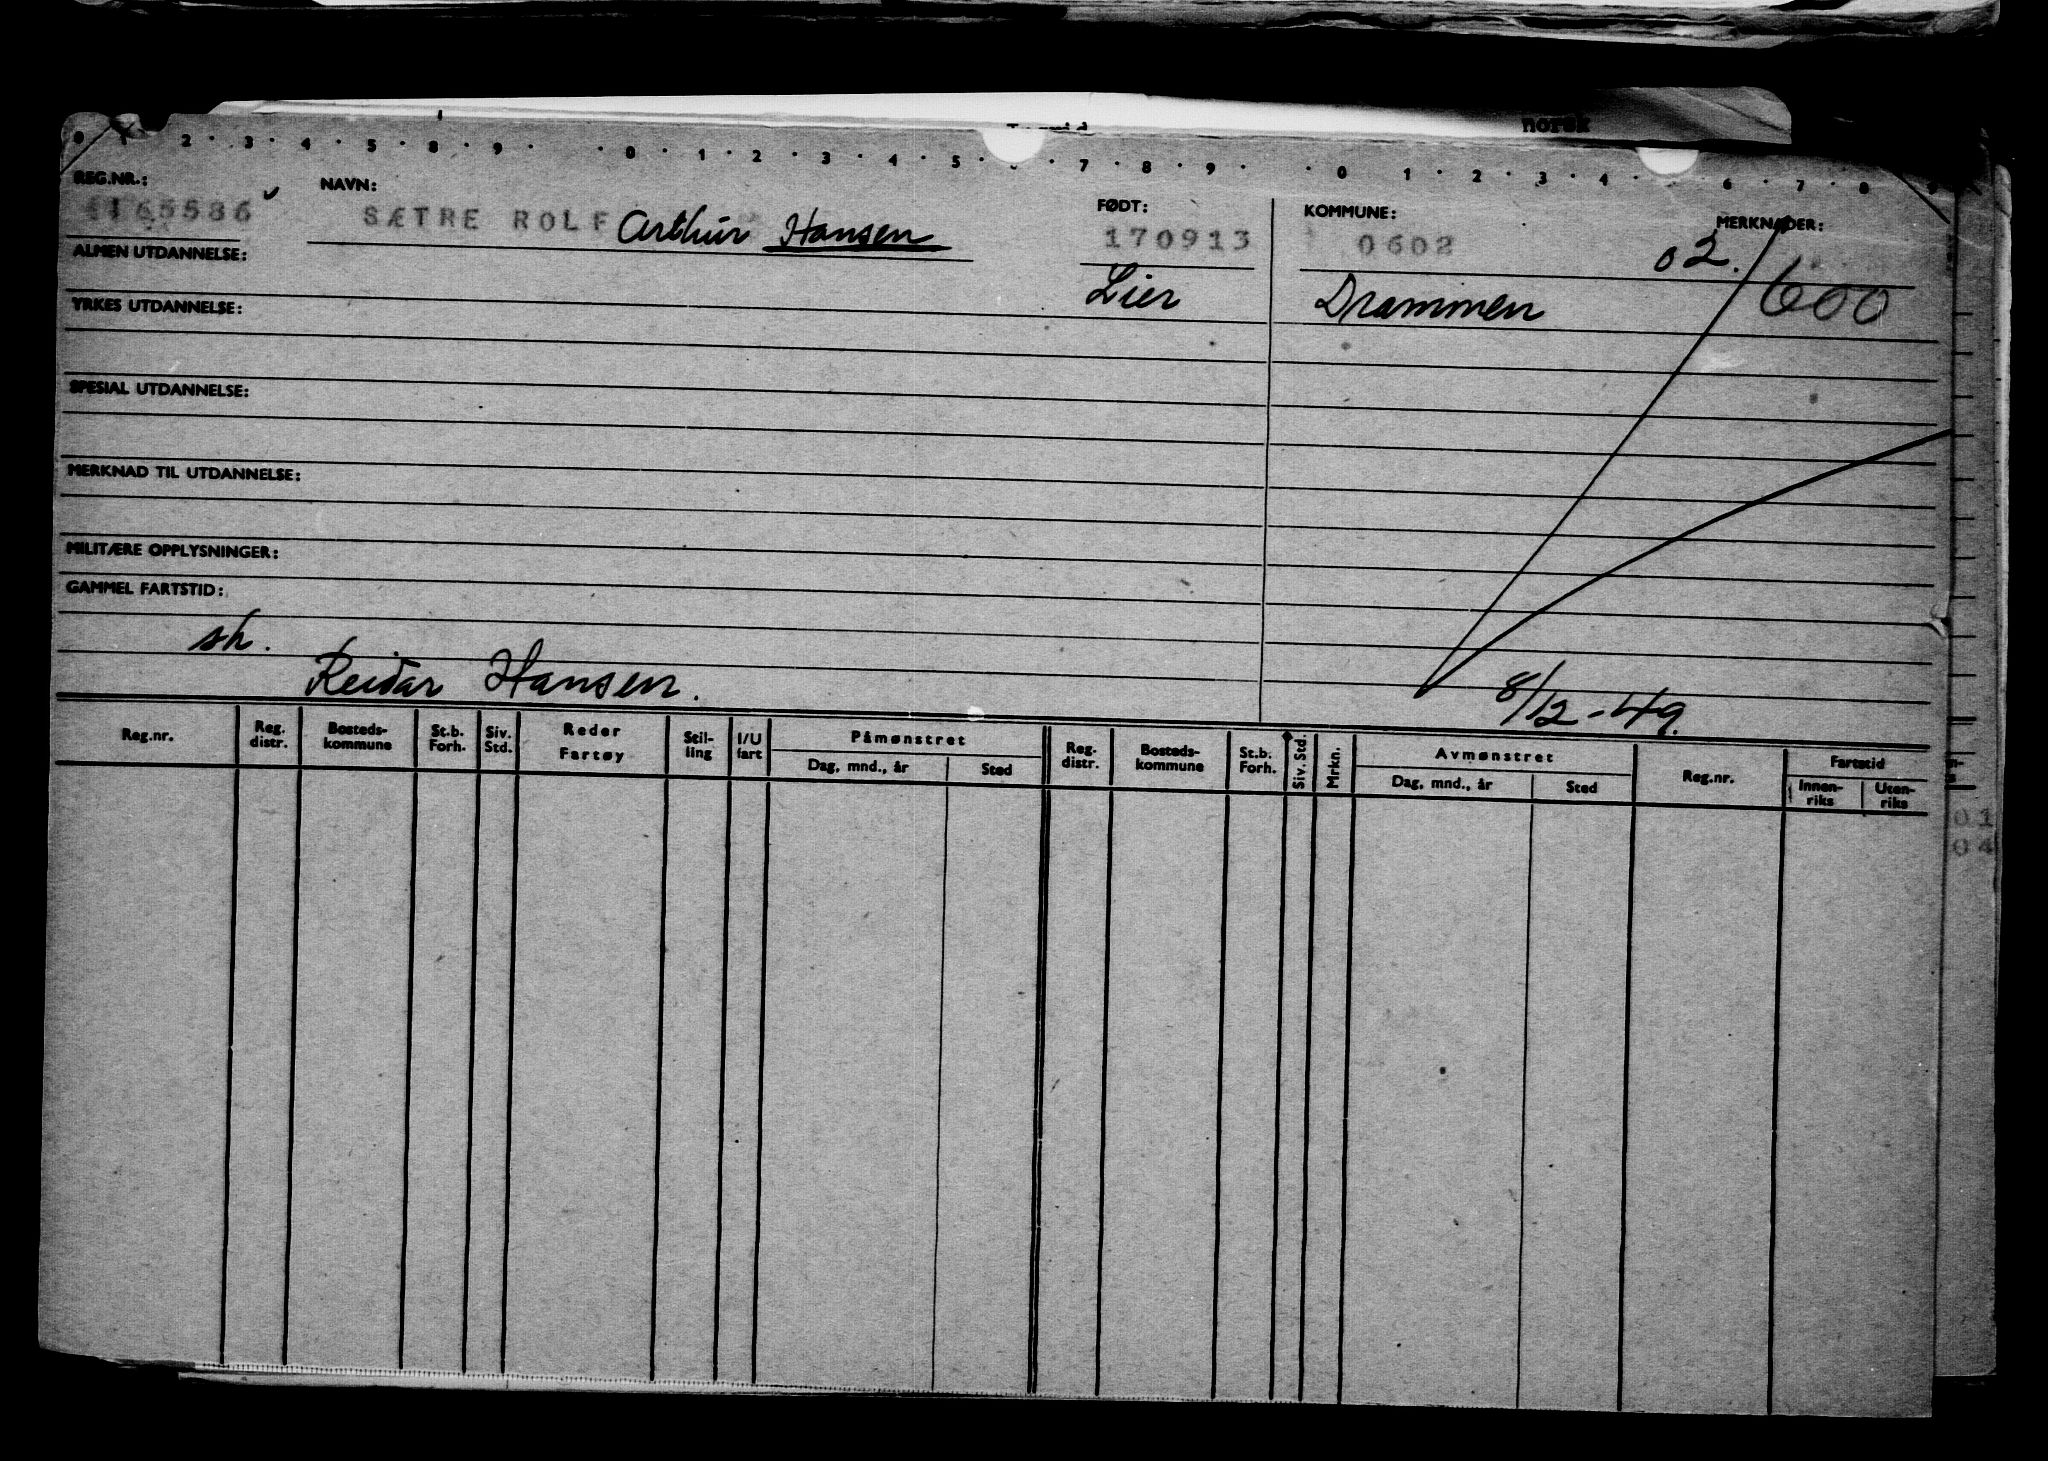 norsk
0 1 2 · 3 · 4 · 5 · 8 · 9 · · 0 · 1 · 2 · 3 · 4 · 5 · · 7 · 8 · 9 · · 0 · 1 · 2 · 3 · 4 · 6 · 7 · 8 · 9
REG.NR.: NAVN: FØDT: KOMMUNE: MERKNADER:
65586 SÆTRE ROLF Arthur Hansen 170913 0602 02.
ALMEN UTDANNELSE: Lier Drammen 600
YRKES UTDANNELSE:
SPESIAL UTDANNELSE:
MERKNAD TIL UTDANNELSE:
MILITÆRE OPPLYSNINGER:
GAMMEL FARTSTID:
sh.
Reidar Hansen. 8/12-49.
Reg.nr. Reg. distr. Bosteds-kommune St.b. Forh. Siv. Std. Reder Fartøy Stil-ling I/U fart Påmønstret Reg. distr. Bosteds-kommune St.b. Forh. Siv. Std. Mrkn. Avmønstret Reg.nr. Fartstid
Dag, mnd., år Sted Dag, mnd., år Sted Innen-riks Uten-riks
01
04